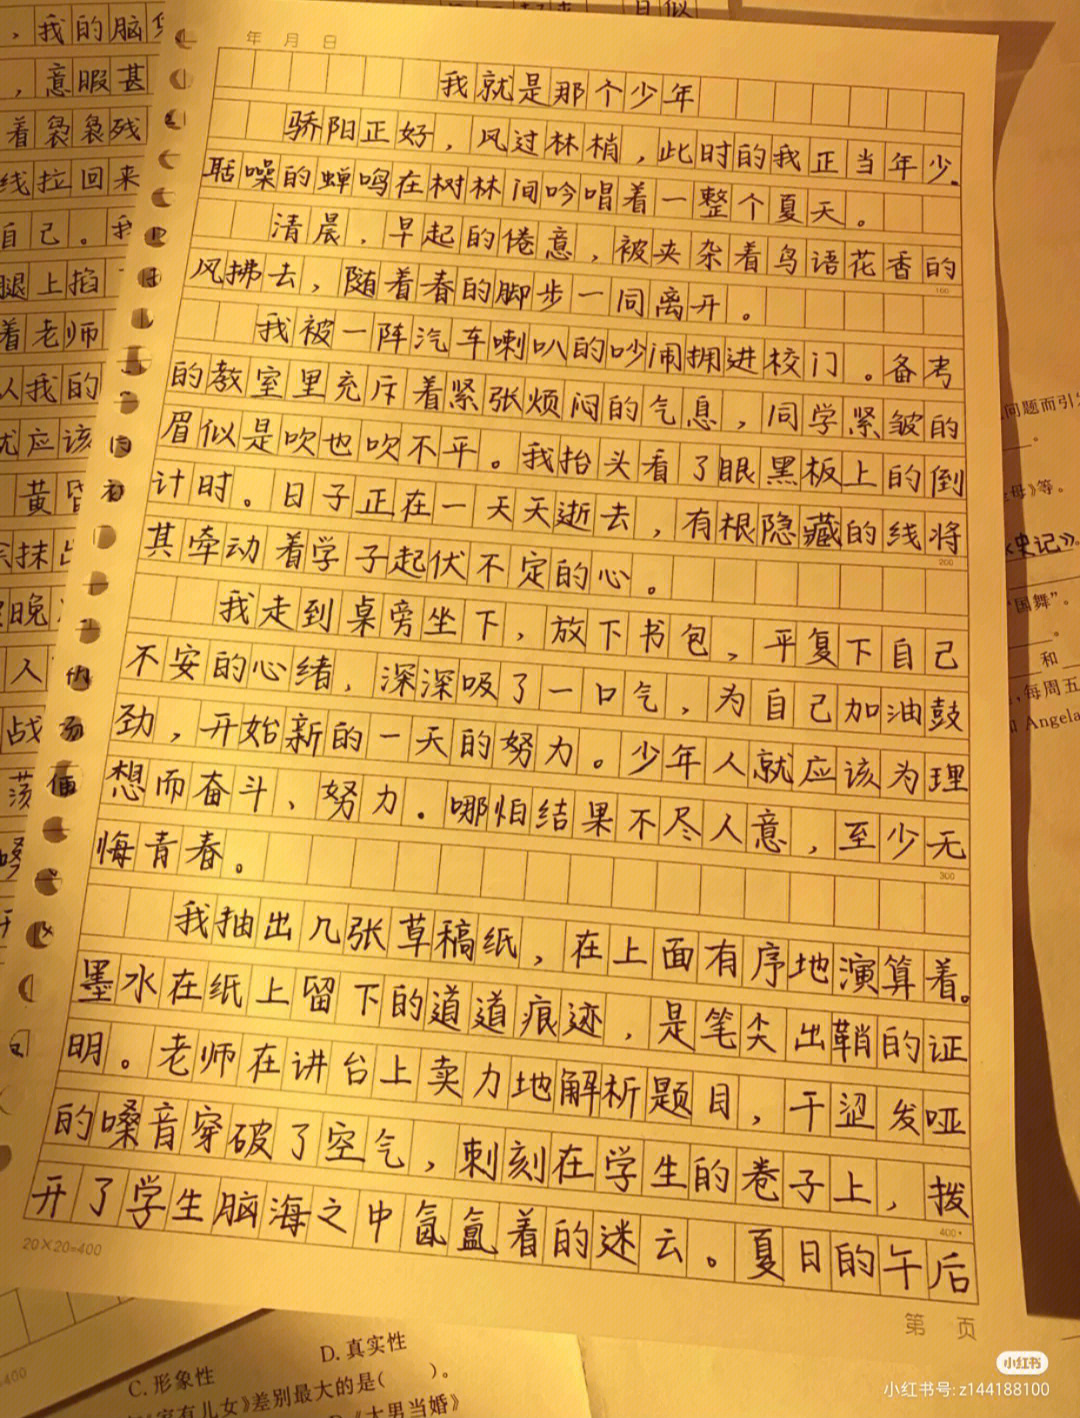 年 月 日
我就是那个少年
骄阳正好，风过林梢，此时的我正当年少。
聒噪的蝉鸣在树林间吟唱着一整个夏天。
清晨，早起的倦意，被夹杂着鸟语花香的
风拂去，随着春的脚步一同离开。
100
我被一阵汽车喇叭的吵闹拥进校门。备考
的教室里充斥着紧张烦闷的气息，同学紧皱的
眉似是吹也吹不平。我抬头看了眼黑板上的倒
计时。日子正在一天天逝去，有根隐藏的线将
200
其牵动着学子起伏不定的心。
我走到桌旁坐下，放下书包，平复下自己
不安的心绪，深深吸了一口气，为自己加油鼓
劲，开始新的一天的努力。少年人就应该为理
想而奋斗、努力。哪怕结果不尽人意，至少无
300
悔青春。
我抽出几张草稿纸，在上面有序地演算着。
墨水在纸上留下的道道痕迹，是笔尖出鞘的证
明。老师在讲台上卖力地解析题目，干涩发哑
的嗓音穿破了空气，刺刻在学生的卷子上，拨
400
开了学生脑海之中氤氲着的迷云。夏日的午后
20×20=400
第 页
，我的脑
，意暇甚
着袅袅残
线拉回来
自己。我
腿上掐
着老师
从我的
尤应该
黄昏
抹
晚
人
战
问题而引
母》等。
《史记》
“国舞”。
和
，每周五
Angela
D. 真实性
C. 形象性
有儿女》差别最大的是( )。
大男当婚》
小红书
小红书号: z144188100